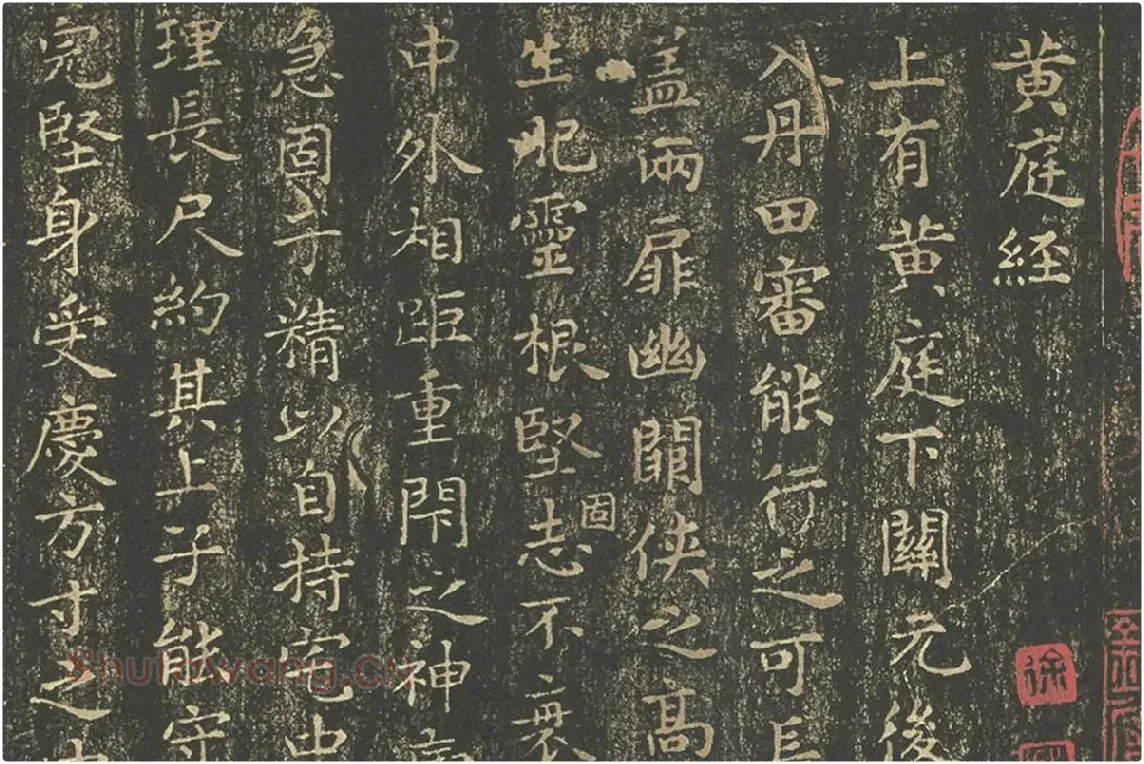 黄庭經
上有黄庭下關元後
入丹田審能行之可長
盖兩扉幽關侠之高
生肥靈根堅志不衰
固
中外相距重閇之神
急固子精以自持宅中
理長尺約其上子能守
完堅身受慶方寸之中
徐
Shufawang.CN